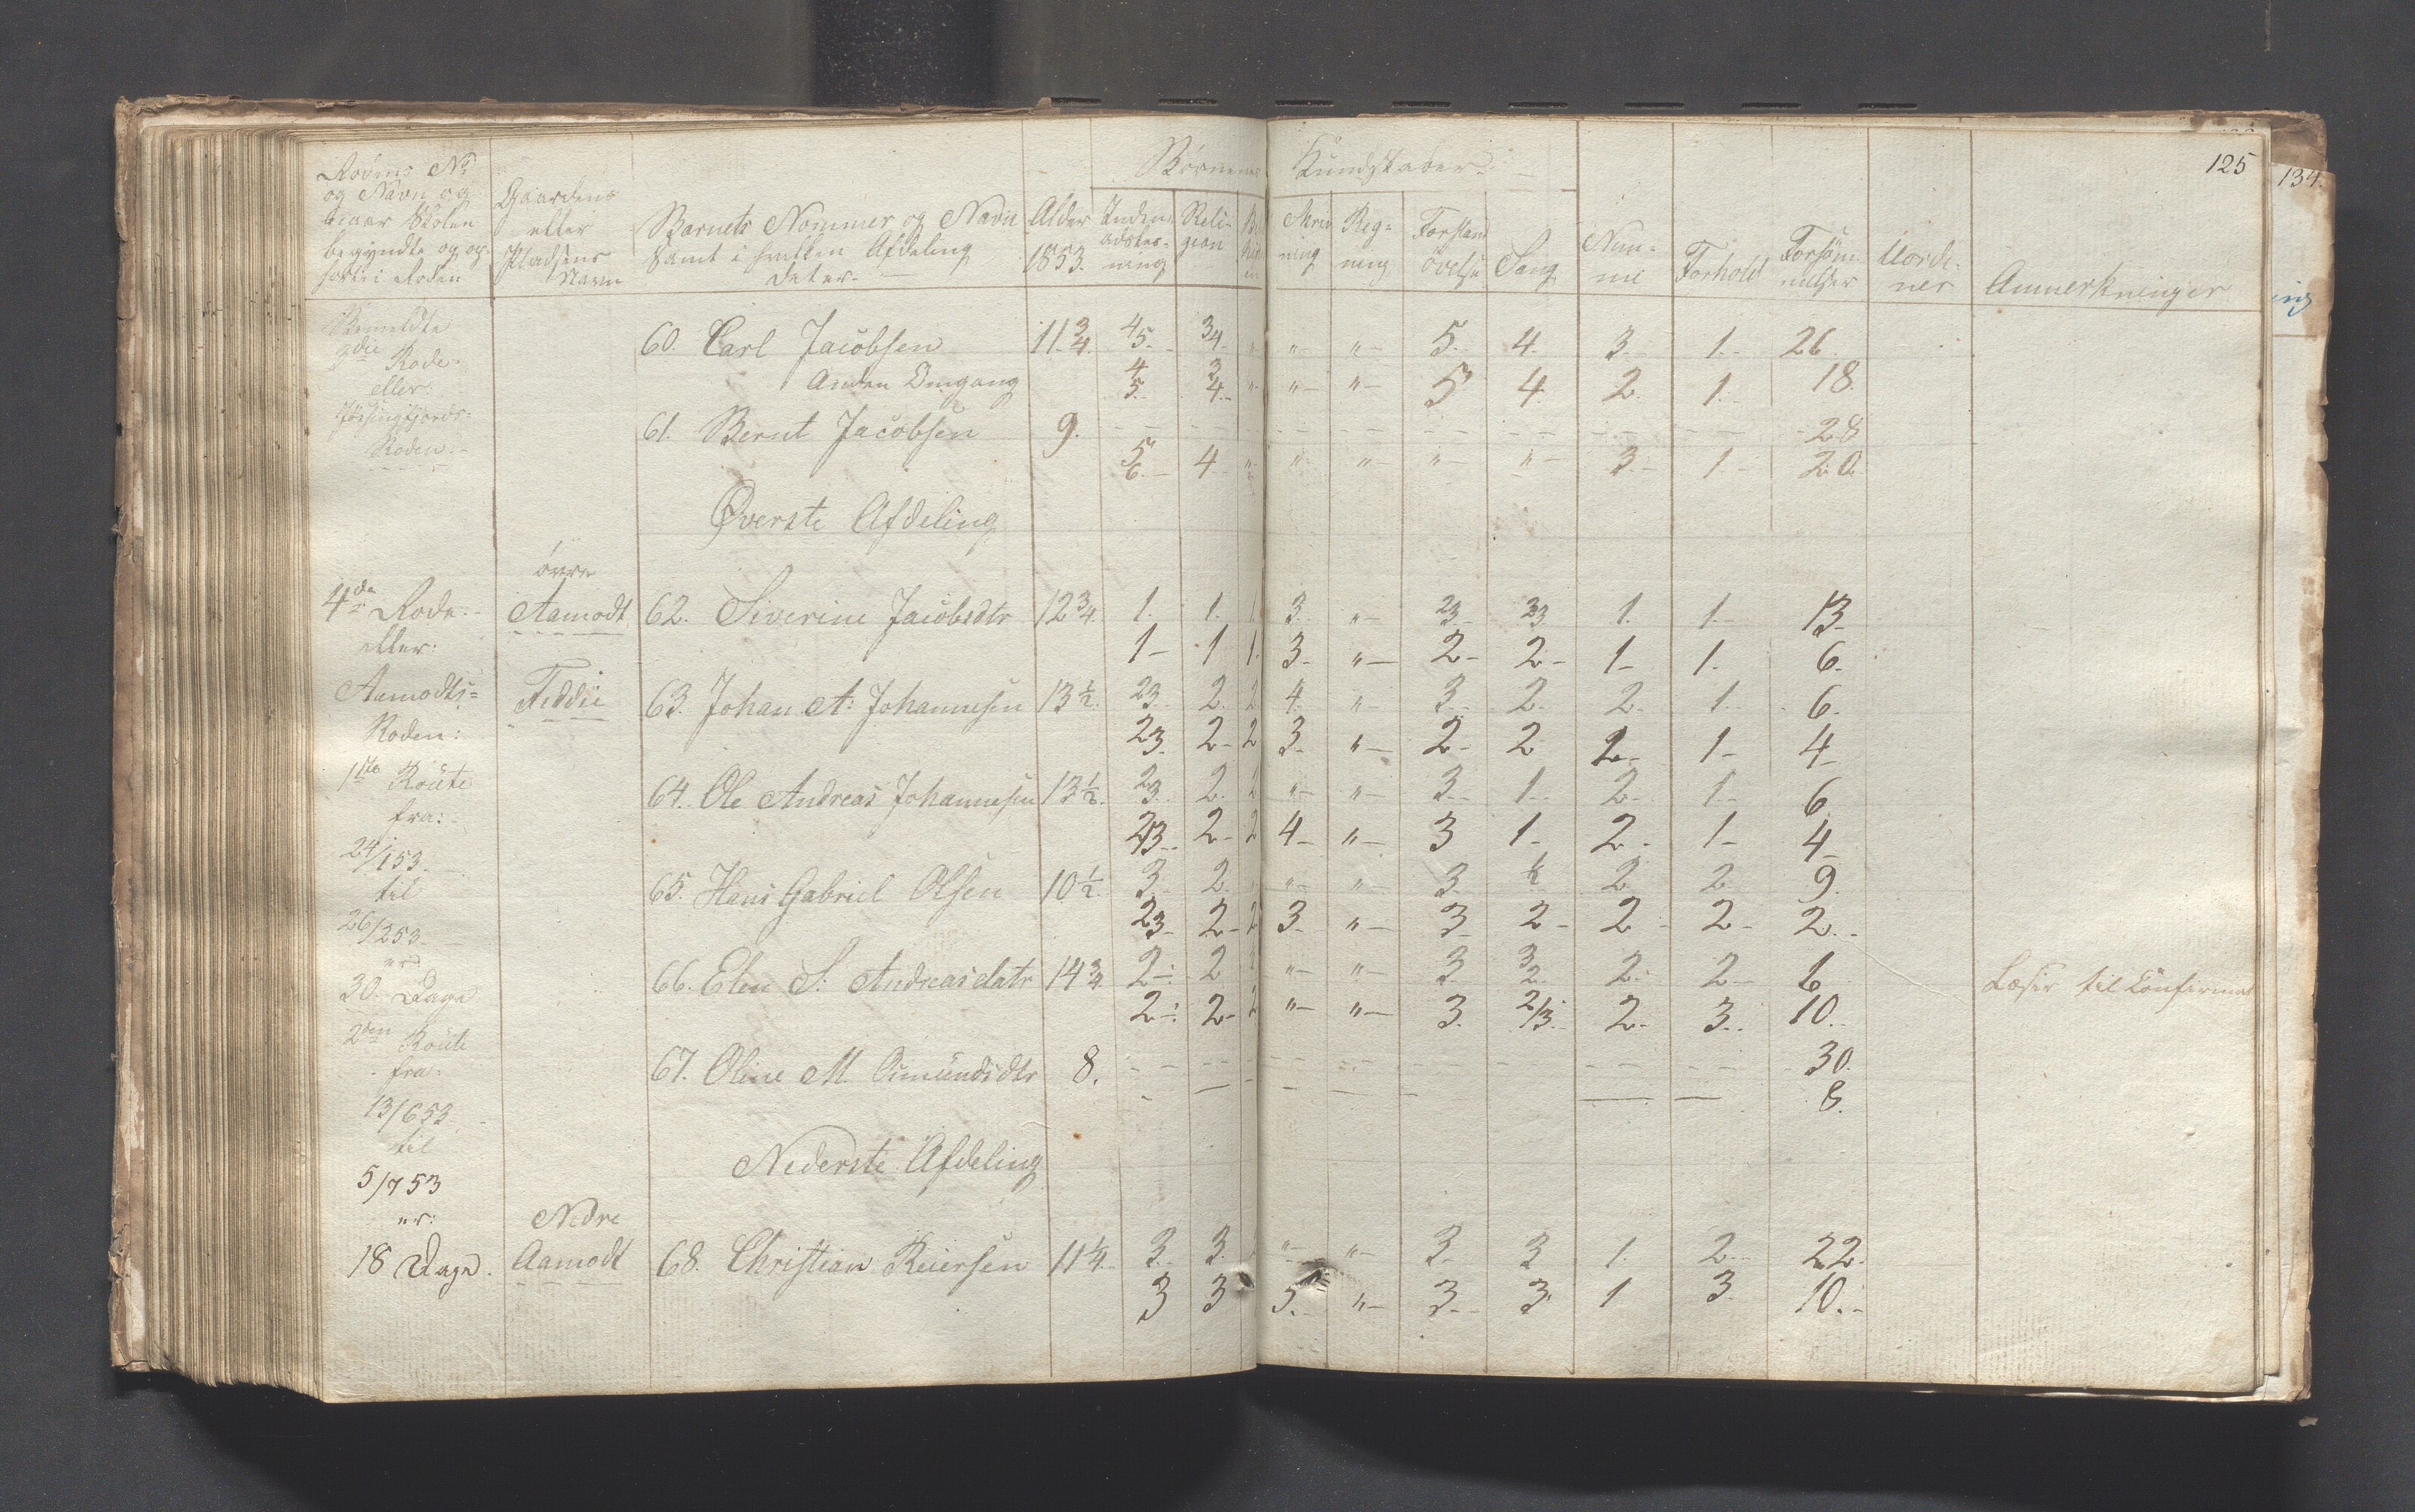 125
134.
Børnenes Kundskaber
Rodens No
og Navn og
hvaar Skolen
begyndte og op-
hørte i Roden
Gaardens
eller
Pladsens
Navn
Barnets Nommer og Navn
samt i hvilken Afdeling
det er.
Alder
1853.
Inden-
adslæs-
ning
Reli-
gion
Skriv
ning
Reg-
ning
Forstand
övelse
Sang
Nem-
me
Forhold
Forsöm-
melser
Uorde-
ner
Anmerkninger
Bemeldte
3die Rode
eller
Jössingfjords-
Roden
60. Carl Jacobsen 11 3/4. 4/5. 3/4. " " " 5. 4. 3. 1. 26
Anden Omgang 4/5. 3/4. " " " 5 4. 2. 1. 18.
61. Bernt Jacobsen 9. 28
5/6. 4 " " " " " 3 1 20.
Øverste Afdeling
4de Rode
eller:
Aamodts-
Roden:
1ste Route
fra:
24/1 53.
til
26/2 53.
er
30. Dage
2den Route
fra
13/6 53
til
5/7 53
er:
18 Dage.
övre
Aamodt 62. Siverine Jacobsdtr 12 3/4. 1. 1. 1 3. " 2/3. 2/3. 1. 1. 13.
1 1 1. 3. " 2 2 1 1. 6.
Feddie 63. Johan A: Johannesen 13 1/2. 2/3. 2. 2 4. " 3. 2. 2. 1. 6.
2/3. 2 2 3. " 2 2 2 1 4
64. Ole Andreas Johannesen 13 1/2. 2/3. 2. 2 " " 3. 1. 2. 1. 6
2/3. 2 2 4 " 3 1 2. 1 4
65. Hans Gabriel Olsen 10 1/2. 3. 2. " " 3. 2 2 9.
2/3 2 2 3. " 3 2 2 2 2.
66. Elen S: Andreasdatr 14 3/4. 2 2 " " 3 3/2. 2. 2 6 Læser til Confirmat
2 2 2 " " 3. 2/3. 2. 3. 10.
67. Oline M. Omundsdtr 8. 30.
8.
Nederste Afdeling
Nedre
Aamodt 68. Christian Reiersen 11 1/4. 3. 3. " " 3. 3 1. 2. 22.
3 3 5. " 3. 3 1 3. 10.